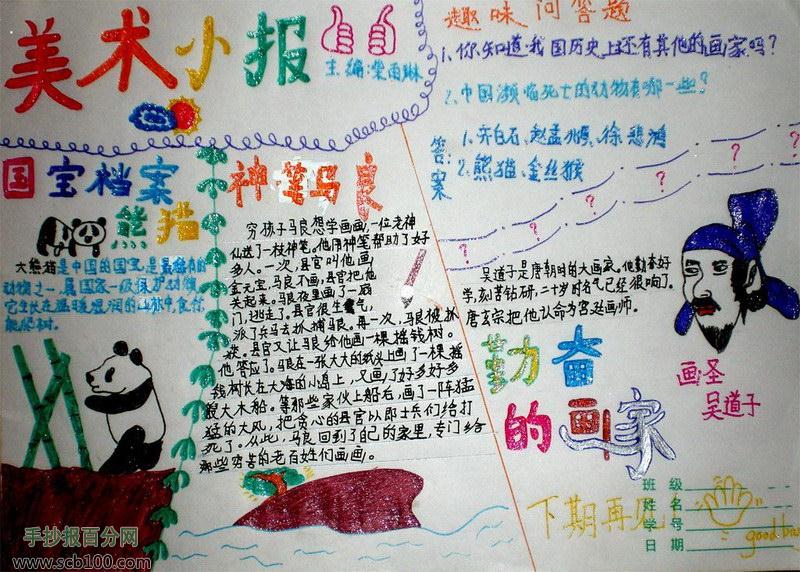 美术小报
主编:梁雨琳
趣味问答题
1、你知道我国历史上还有其他的画家吗?
2、中国濒临死亡的动物有哪一些?
答案
1、齐白石、赵孟、徐悲鸿
2、熊猫、金丝猴
国宝档案
熊猫
大熊猫是中国的国宝,是最稀有的
动物之一,属国家一级保护动物。
它生长在温暖湿润的山林中,食竹,
能爬树。
神笔马良
穷孩子马良想学画画,一位老神
仙送了一枝神笔。他用神笔帮助了好
多人。一次,县官叫他画
金元宝,马良不画,县官把他
关起来。马良夜里画了一扇
门,逃走了。县官很生气,
派了兵马去抓捕马良。再一次,马良被抓
县官又让马良给他画一棵摇钱树。
他答应了。马良在一张大大的纸头上画了一棵摇
钱树长在大海的小岛上,又画了好多好多
艘大木船。等那些家伙上船后,画了一阵猛
猛的大风,把贪心的县官以即士兵们给打
死了。从此,马良回到了自己的家里,专门给
那些穷苦的老百姓们画画。
吴道子是唐朝时的大画家。他勤奋好
学,刻苦钻研,二十岁时名气已经很响了。
唐玄宗把他认命为宫廷画师。
画圣
吴道子
勤奋
的画家
下期再见!
班级
姓名
学号
日期
good bay
手抄报百分网
www.scb100.com